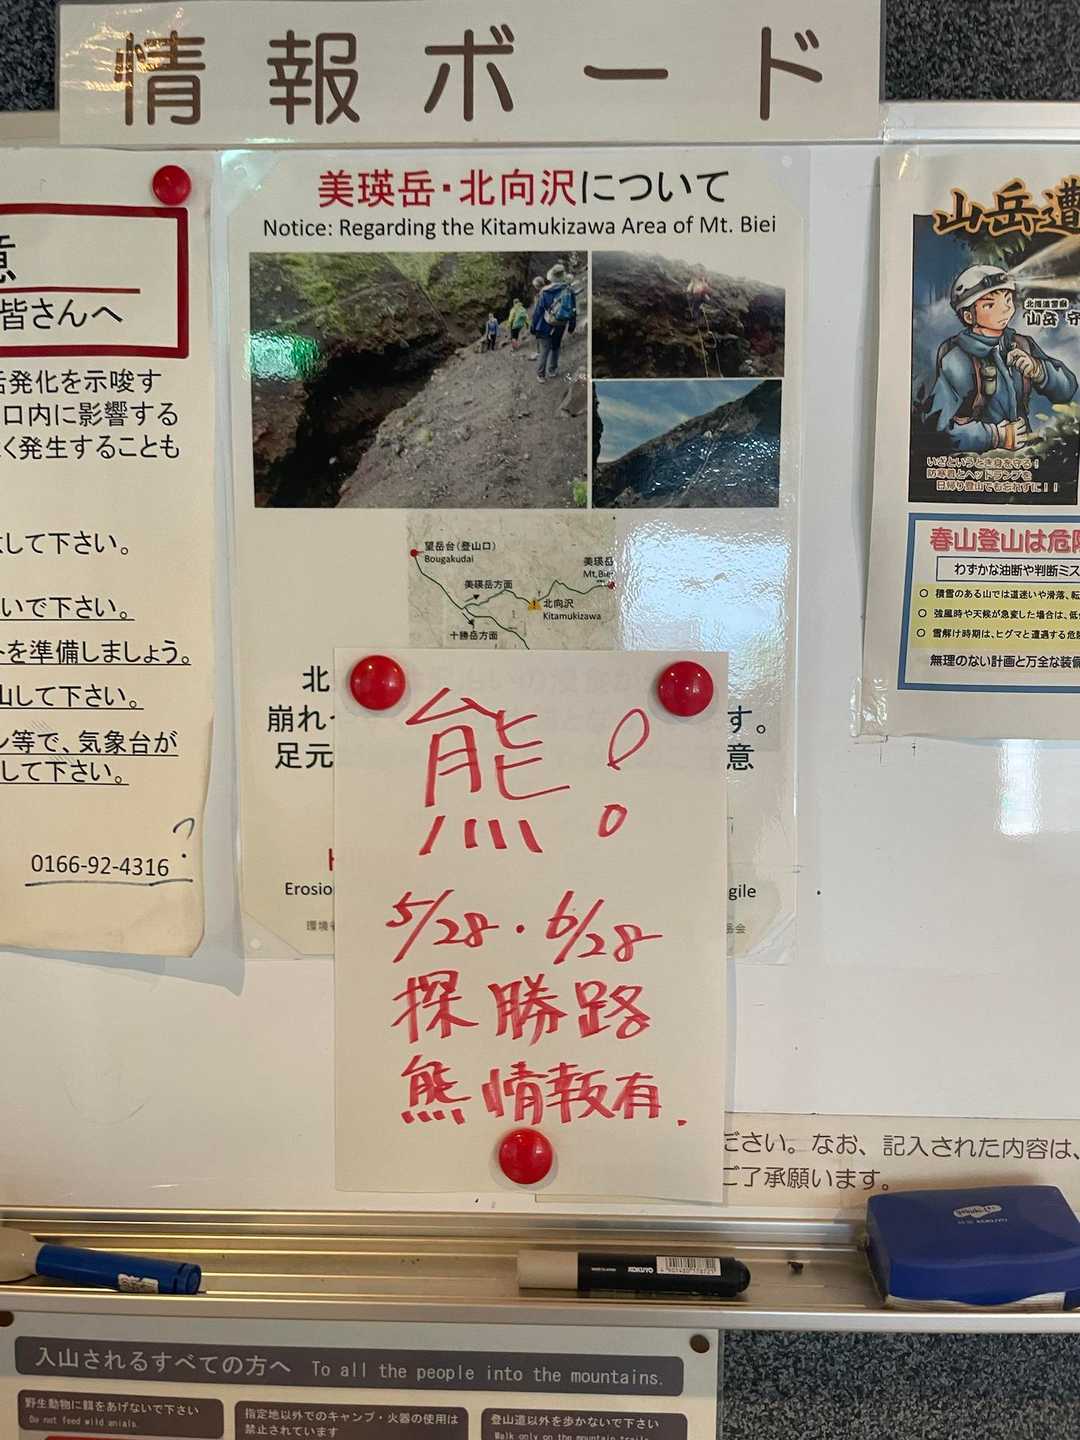 情報ボード
意
皆さんへ
活発化を示唆す
口内に影響する
く発生することも
して下さい。
いで下さい。
トを準備しましょう。
山して下さい。
ン等で、気象台が
して下さい。
?
0166-92-4316
美瑛岳・北向沢について
Notice: Regarding the Kitamukizawa Area of Mt. Biei
望岳台(登山口)
Bougakudai
美瑛岳
Mt.Biei
美瑛岳方面
北向沢
Kitamukizawa
十勝岳方面
北
崩れ
す。
足元
意
Erosio
gile
環境省
岳会
熊!
5/28・6/28
探勝路
熊情報有.
山岳遭
北海道警察
山岳 守
いざというとき身を守る!
防寒着とヘッドランプを
日帰り登山でも忘れずに!!
春山登山は危険
わずかな油断や判断ミス
○ 積雪のある山では道迷いや滑落、転
○ 強風時や天候が急変した場合は、低
○ 雪解け時期は、ヒグマと遭遇する危険
無理のない計画と万全な装備
ださい。なお、記入された内容は、
ご了承願います。
KOKUYO
KOKUYO
入山されるすべての方へ To all the people into the mountains.
野生動物に餌をあげないで下さい
Do not feed wild anials.
指定地以外でのキャンプ・火器の使用は
禁止されています
登山道以外を歩かないで下さい
Walk only on the mountain trails